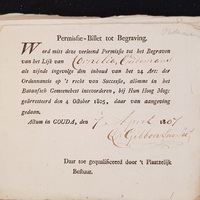 Permissie-Billet tot Begraving.
Word mits deze verleend Permissie tot het Begraven
van het Lijk van Cornelia
als zijnde ingevolge den inhoud van het 24 Art: der
Ordonnantie op 't recht van Successie, alomme in het
Bataafsch Gemeenebest intevorderen, bij Hun Hoog Mog:
geärresteerd den 4 October 1805, daar van aangeving
gedaan.
Actum in GOUDA, den 7 April 1807
Daar toe gequalificeerd door 't Plaatzelijk
Bestuur.